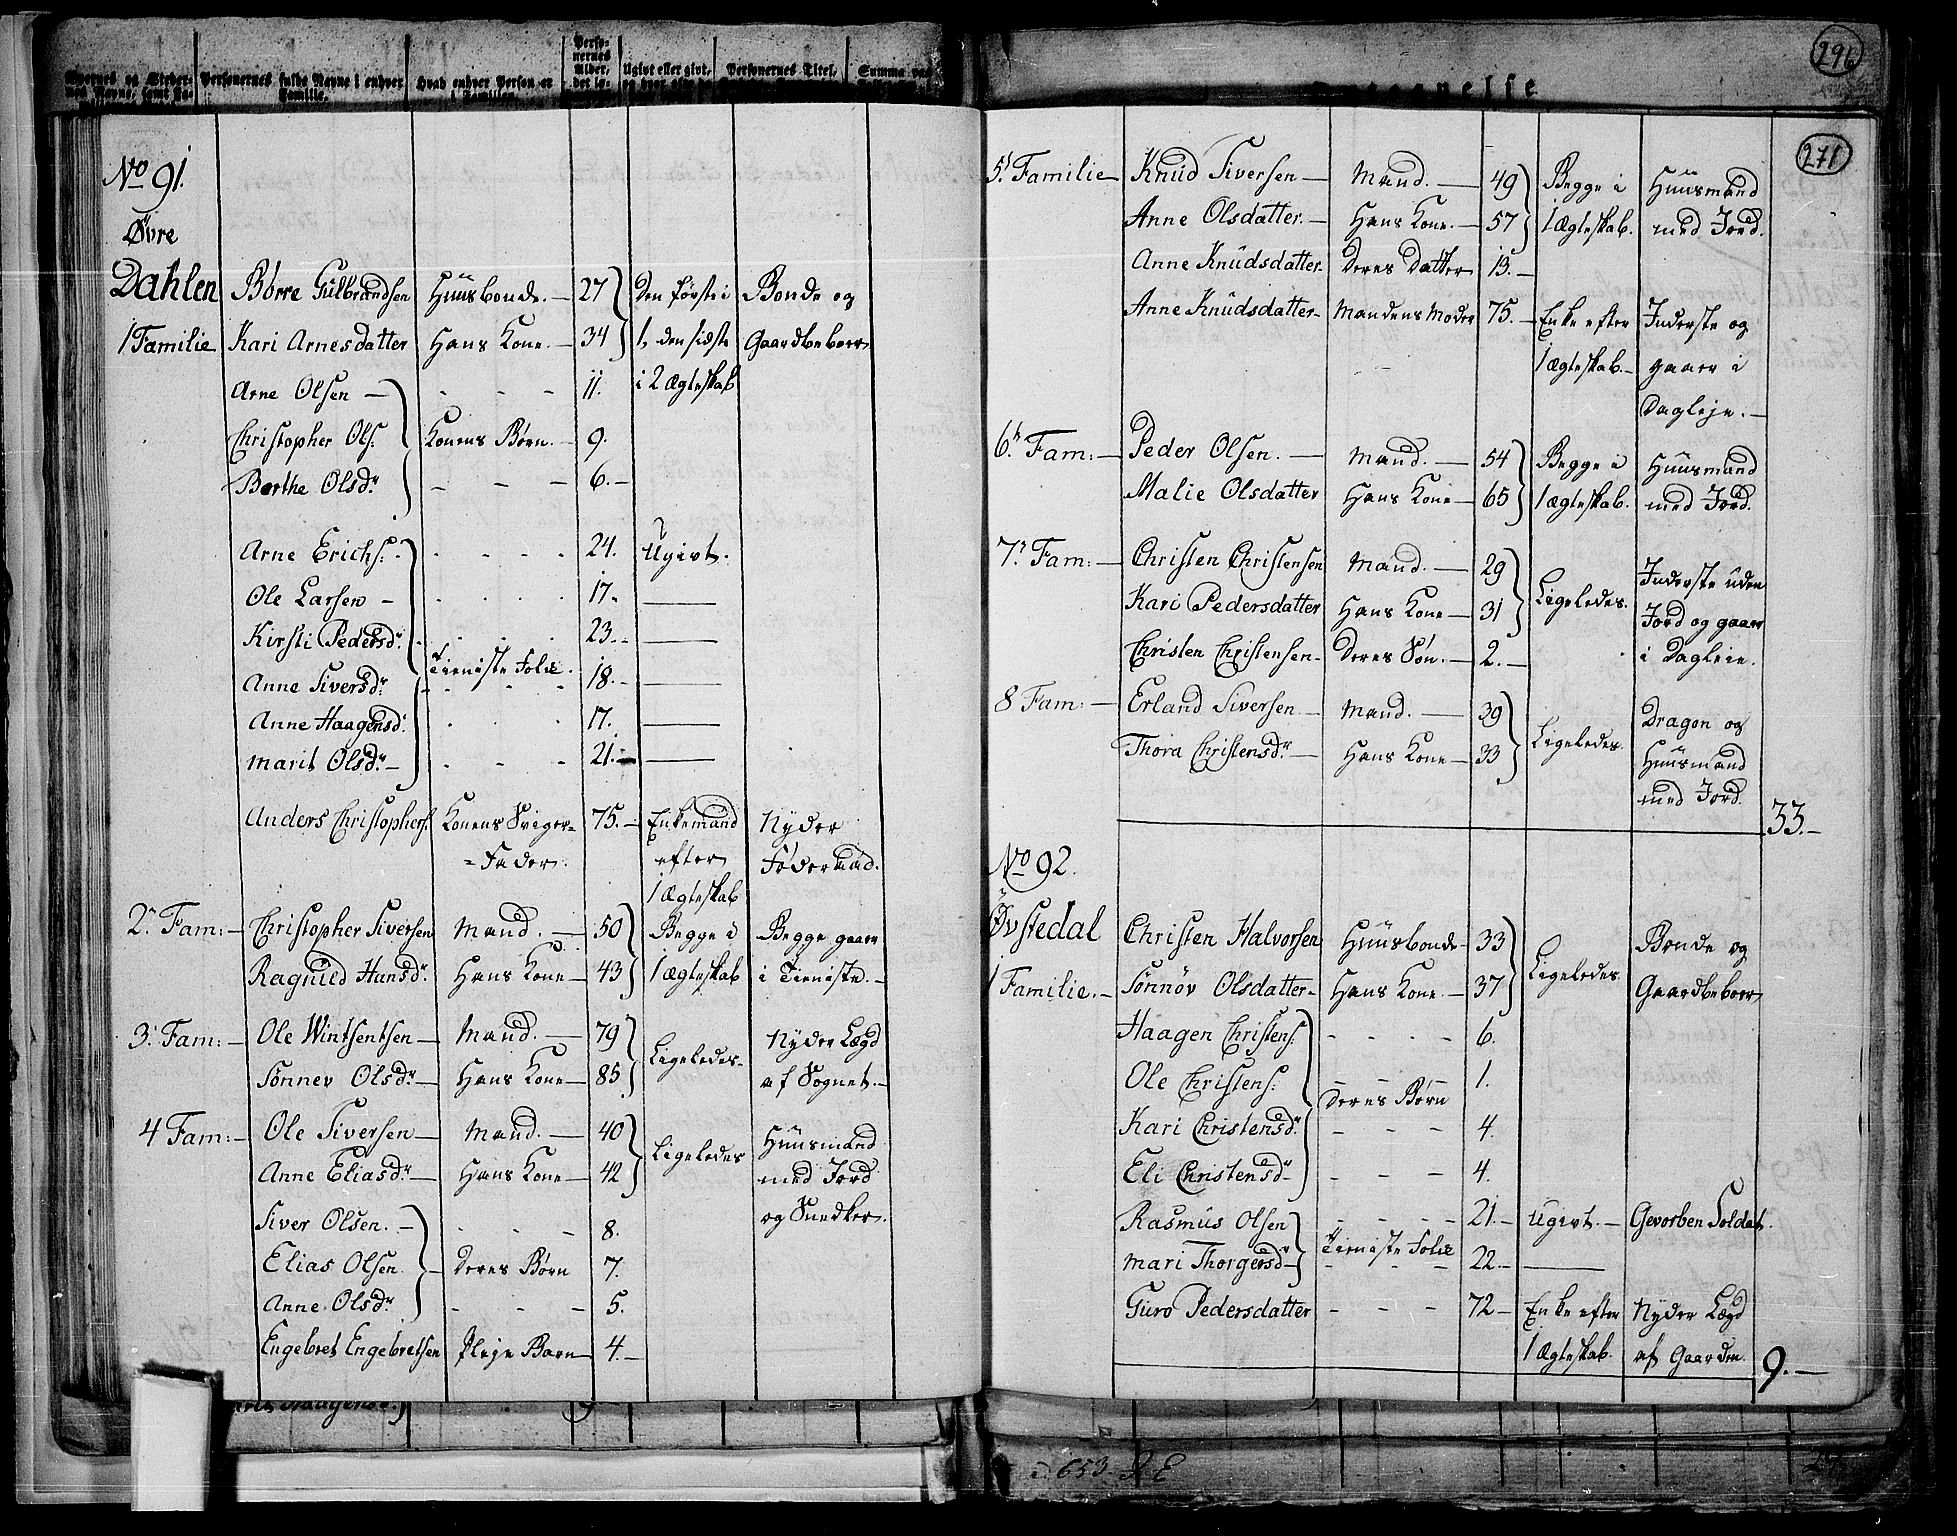 Personernes fulde Navne i enhver Familie.
Hvad enhver Person er i Familien.
Personernes Alder,
Ugivt eller givt,
Personernes Titel,
296
271
No 91.
Øvre
Dahlen Börre Gulbrandsen Huusbonde. — 27 Den første i Bonde og
1 Familie Kari Arnesdatter Hans Kone. — 34 1, den sidste Gaardbeboer
i 2 Ægteskab
Arne Olsen — - - - 11.
Christopher Ols: Konens Børn. — 9.
Berthe Olsdr. - - - 6. —
Arne Erichs: - - - - 24. Ugivt.
Ole Larsen — - - - - 17. ——
Kirsti Pedersdr. - - - 23. ——
Tieniste Folk.
Anne Siversdr. - - - - 18. ——
Anne Haagensd: - - - 17. ——
Marit Olsdr. — - - - 21. ——
Anders Christophers: Konens Sviger= 75. — Enkemand Nyder
=Fader. efter Föderaad.
1 Ægteskab
2. Fam: — Christopher Siversen Mand. — 50 Begge i Begge gaaer
Ragnild Hansdr. Hans Kone — 43 1 Ægteskab i Tieniste. —
3. Fam: — Ole Wintsentsen — Mand. — 79 Nyder Lægd
Ligeledes —
Sønnev Olsdr. — Hans Kone — 85 af Sognet. —
4 Fam: — Ole Siversen — Mand. — 40 Huusmand
Ligeledes
Anne Eliasdr. — Hans Kone — 42 med Jord
Siver Olsen. — - - - 8. og Snedker.
Elias Olsen. Deres Børn 7.
Anne Olsdr. - - - 5.
Engebret Engebretsen Pleje Barn — 4. —
5. Familie — Knud Siversen — Mand. — 49 Begge i Huusmand
Anne Olsdatter. — Hans Kone. — 57 1 Ægteskab. med Jord.
Anne Knudsdatter. Deres Datter 13. —
Anne Knudsdatter — Mandens Moder 75. — Enke efter Inderste og
1 Ægteskab. — gaaer i
Dagleje. —
6. Fam: — Peder Olsen. — Mand. — 54 Begge i Huusmand
Malie Olsdatter Hans Kone — 65 1 Ægteskab. med Jord.
7. Fam: — Christen Christensen Mand. — 29 Inderste uden
Ligeledes.
Kari Pedersdatter Hans Kone — 31 Jord og gaaer
Christen Christensen — Deres Søn. — 2. — i Dagleie.
8 Fam: — Erland Siversen — Mand. — 39 Dragon og
Ligeledes.
Thora Christensdr. — Hans Kone — 33 Huusmand
med Jord. 33. —
No 92.
Øvstedal Christen Halvorsen Huusbonde — 33 Bonde og
Ligeledes.
1 Familie. — Sønnøv Olsdatter — Hans Kone. — 37 Gaardbeboer
Haagen Christens: - - - - 6.
Ole Christens: - - - 1.
Deres Børn
Kari Christensdr. - - - 4.
Eli Christensdr — - - - 4.
Rasmus Olsen - - - - 21. — Ugivt. — Gevorben Soldat.
Tieniste Folk
Mari Thorgersdr — - - - 22. — ——
Guro Pedersdatter - - - 72 — Enke efter Nyder Lægd
1 Ægteskab. af Gaarden. 9. —
653.